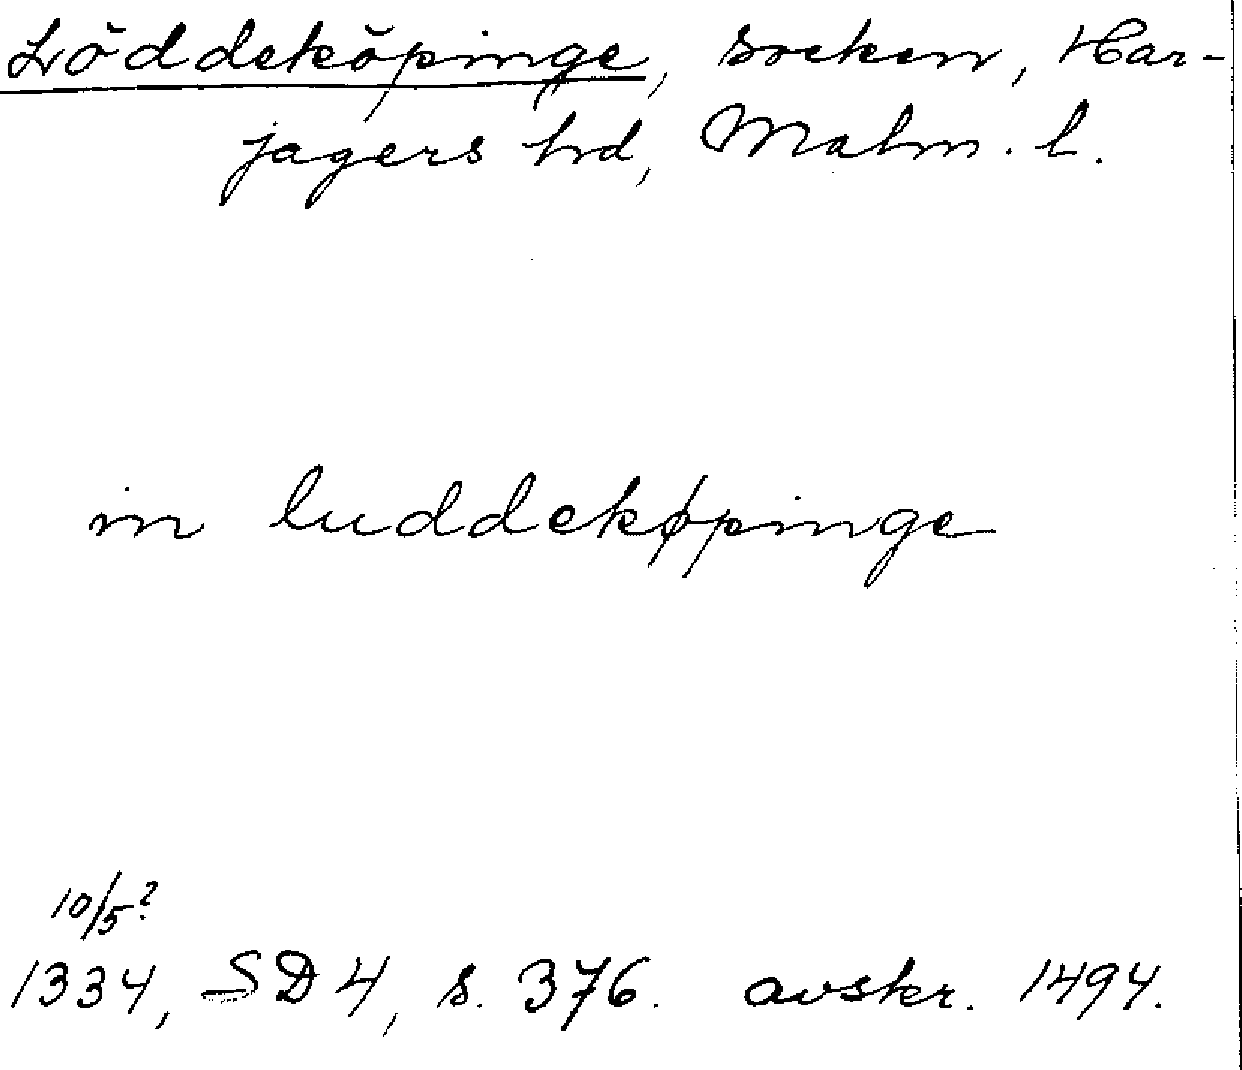 Löddeköpinge, socken, Har-
jagers hrd, Malm. l.
in luddekøpinge
10/5?
1334, SD 4, s. 376. avskr. 1494.